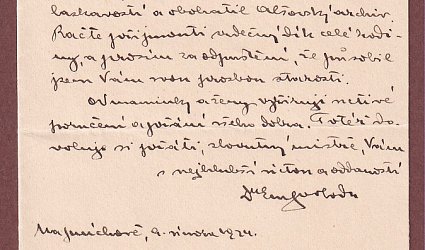 laskavostí a obohatil Alšovský archiv.
Račte přijmouti vděčný dík celé rodi-
ny, a prosím za odpuštění, že působil
jsem Vám svou prosbou starosti.
Od maminky a ženy vyřizuji uctivé
poručení a přání všeho dobra. Totéž do-
voluje si přáti, slovutný mistře, Vám
s nejhlubší úctou a oddaností
Dr Em Svoboda
Na Smíchově, 9. února 1924.